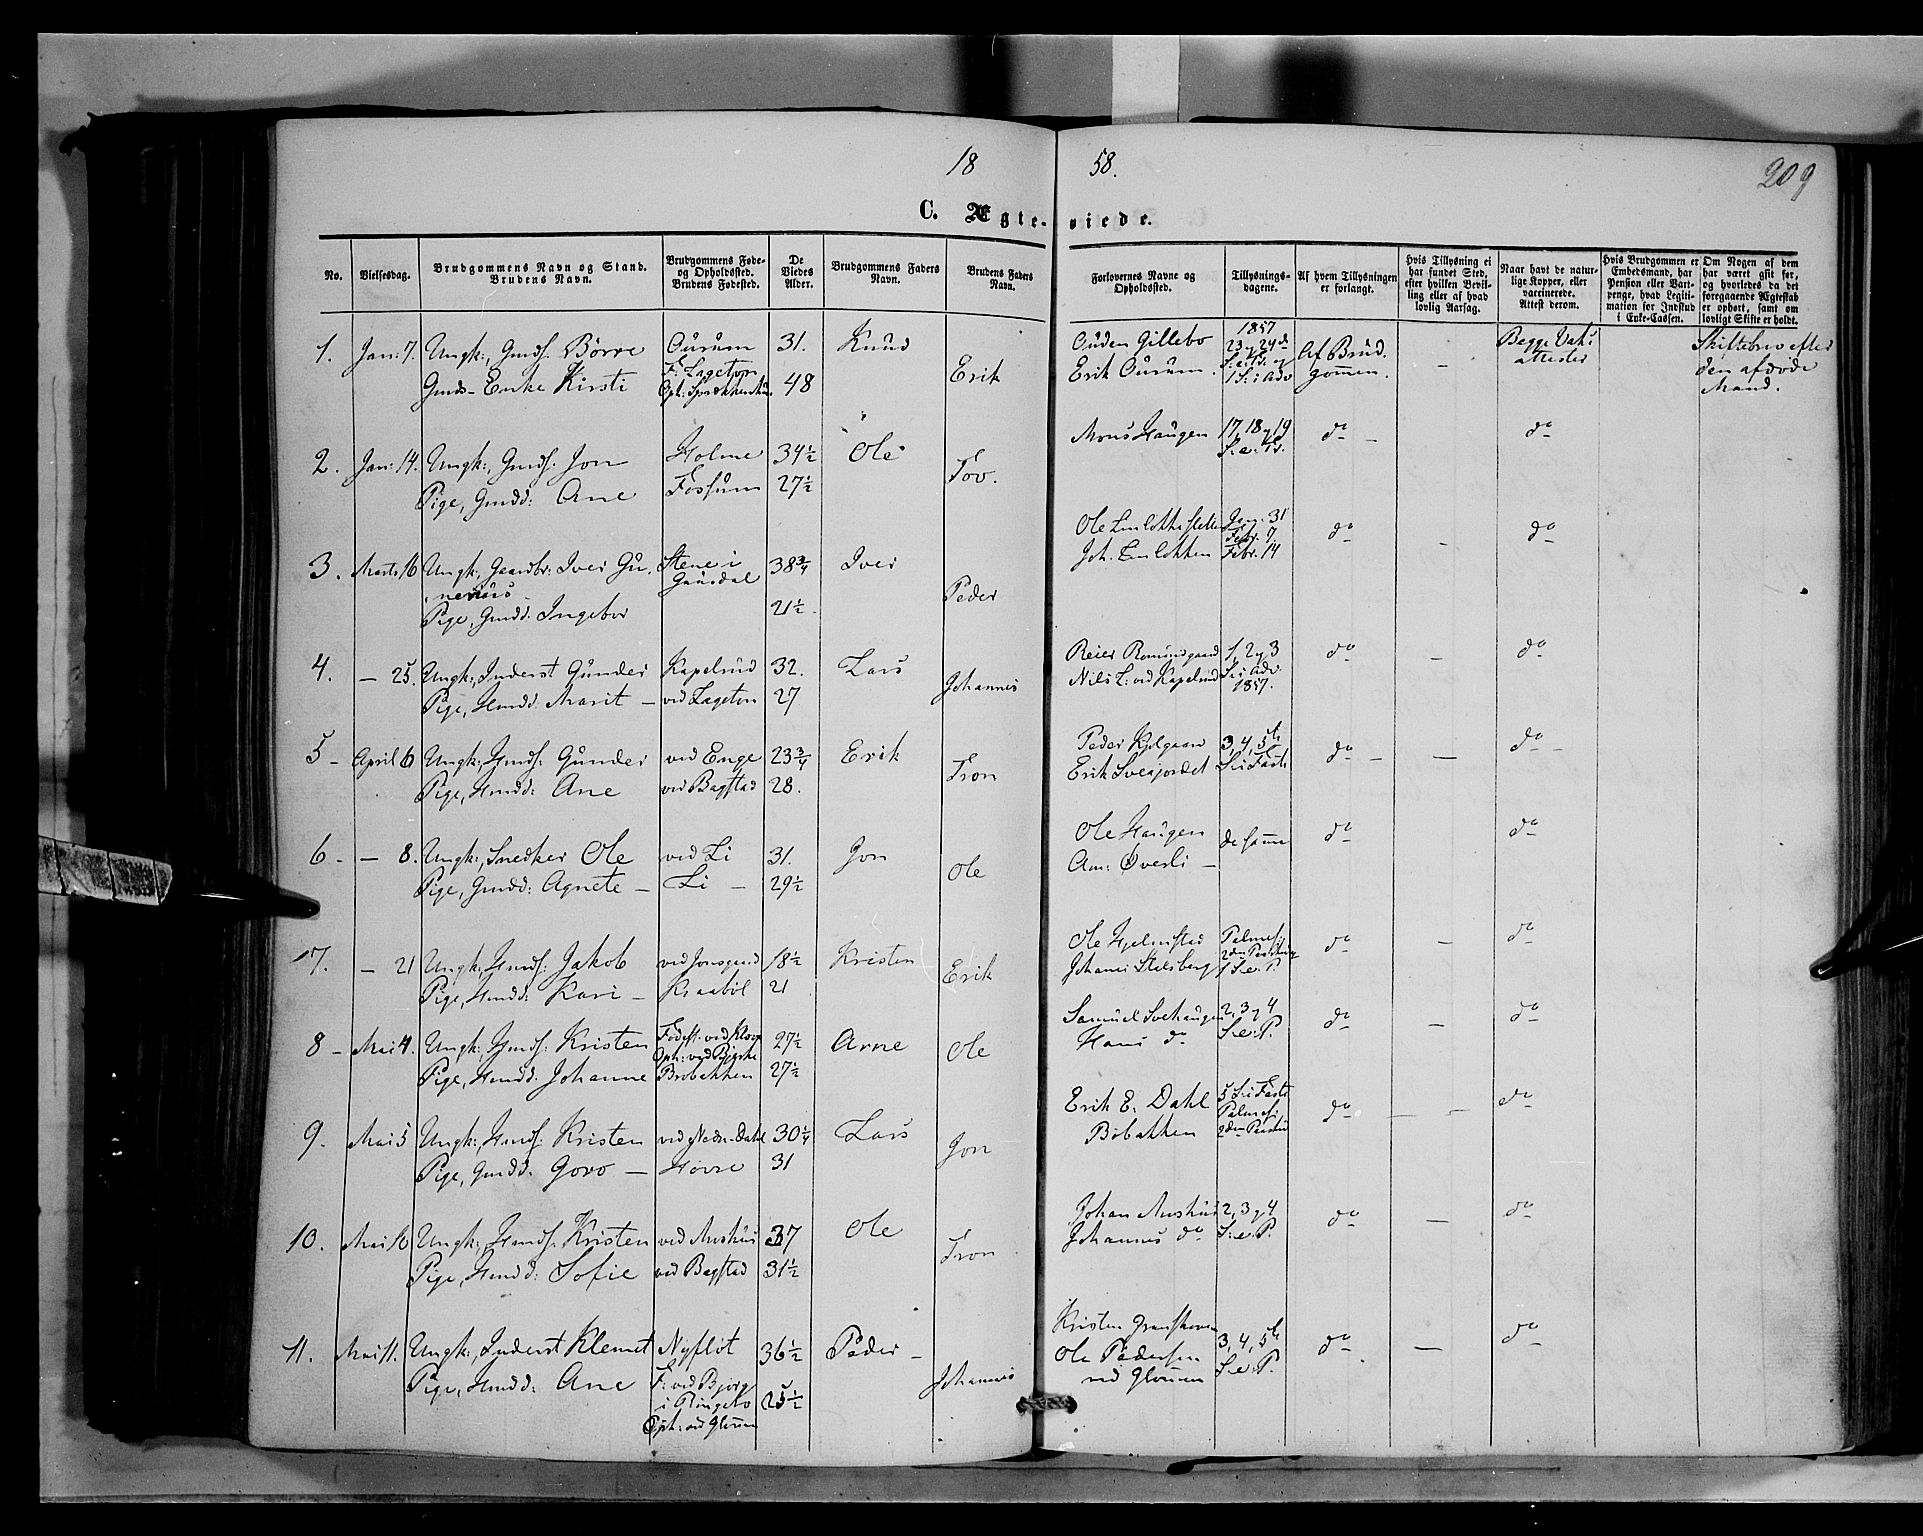 18 58.
209
C. Ægte- viede.
No.
Vielsesdag.
Brudgommens Navn og Stand.
Brudens Navn.
Brudgommens Føde-
og Opholdssted.
Brudens Fødested.
De
Viedes
Alder.
Brudgommens Faders
Navn.
Brudens Faders
Navn.
Forlovernes Navne og
Opholdssted.
Tillysnings-
dagene.
Af hvem Tillysningen
er forlangt.
Hvis Tillysning ei
har fundet Sted,
efter hvilken Bevil-
ling eller af hvad
lovlig Aarsag.
Naar havt de natur-
lige Kopper, eller
vaccinerede.
Attest derom.
Hvis Brudgommen er
Embedsmand, har
Pension eller Vart-
penge, hvad Legiti-
mation for Indskud
i Enke-Cassen.
Om Nogen af dem
har været gift før,
og hvorledes da det
foregaaende Ægteskab
er ophørt, samt om
lovligt Skifte er holdt.
1. Jan: 7. Ungk:, Gmds: Börre Ourum 31. Knud
Gmds- Enke Kirsti F: Lageton 48 Erik
Ouden Gillebo 1857
Erik Ourum. 23 og 24de S. e. Tr. og 1 S: i Adv
Af Brud-
gommen. - Begge Vaks
attester
Skiftebrev efter
den afdöde
Mand.
2. Jan: 14. Ungk:, Gmds: Jon Holme 34½ Ole
Pige, Gmdd: Ane Fossum 27½ Tov.
Mons Haugen 17, 18 og 19
S. e. Tr. do - do
3. Marts 16 Ungk: Gaardbr: Iver Gu- Stene i 38¾ Iver
nerius Gausdal
Pige, Gmdd: Ingebor 21½ Peder
Jan. 31
Febr. 7
Joh. Linlökken Febr. 14 do - do
4. - 25. Ungk:, Inderst Gunder Kapelrud 32. Lars
Pige, Hmdd: Marit - ved Lageton 27 Johannes
Reier Romundgaard 1, 2 og 3
Nils L: ved Kapelrud S: i Adv
1857. do - do
5 - April 6 Ungk:, Hmds: Gunder ved Enge 23¾ Erik
Pige, Hmdd: Ane ved Bagstad 28. Tron
Peder 3, 4, 5te
Erik Sveajordet S: i Faste do - - do -
6 - - 8. Ungk:, Snedker Ole ved Li 31. Jon
Pige, Gmdd: Agnete - Li - 29½ Ole
Ole Haugen de samme
Am: Øverli - do do
7. - 21 Ungk:, Hmds: Jakob ved Jonsgaard 18½ Kristen
Pige, Hmdd: Kari - Kraaböl 21 Erik
Ole Hjelmstad Palmes:
2den Paaskedag
1 S. e. P. do - do
8 - Mai 4. Ungk:, Hmds: Kristen 27½ Arne
Oph: ved
Pige, Hmdd: Johanne Brobakken 27½ Ole
Samuel Svehaugen 2, 3 og 4
Hans do S. e. P. do - do
9. Mai 5 Ungk:, Hmds: Kristen ved Nedre-Dahl 30¼ Lars
Pige, Gmdd: Goro - Hovre 31 Jon
Erik E. Dahl 5 S: i Faste
Palmes:
Böbakken 2den do - - do
10. Mai 10 Ungk:, Hmds: Kristen ved Aushus 37 Ole
Pige, Hmdd: Sofie ved Bagstad 31½ Tron
Johan Aushus 2, 3 og 4
Johannes do S. e. P. do - do
11. Mai 11. Ungk:, Inderst Klemet Nyflöt 36½ Peder -
Pige, Hmdd: Ane F: ved Bjorge
i Ringebo 25½ Johannes
Oph: ved Glömm
Kristen
Ole Pedersen 3, 4, 5te
ved Glömm S. e. P. do - do